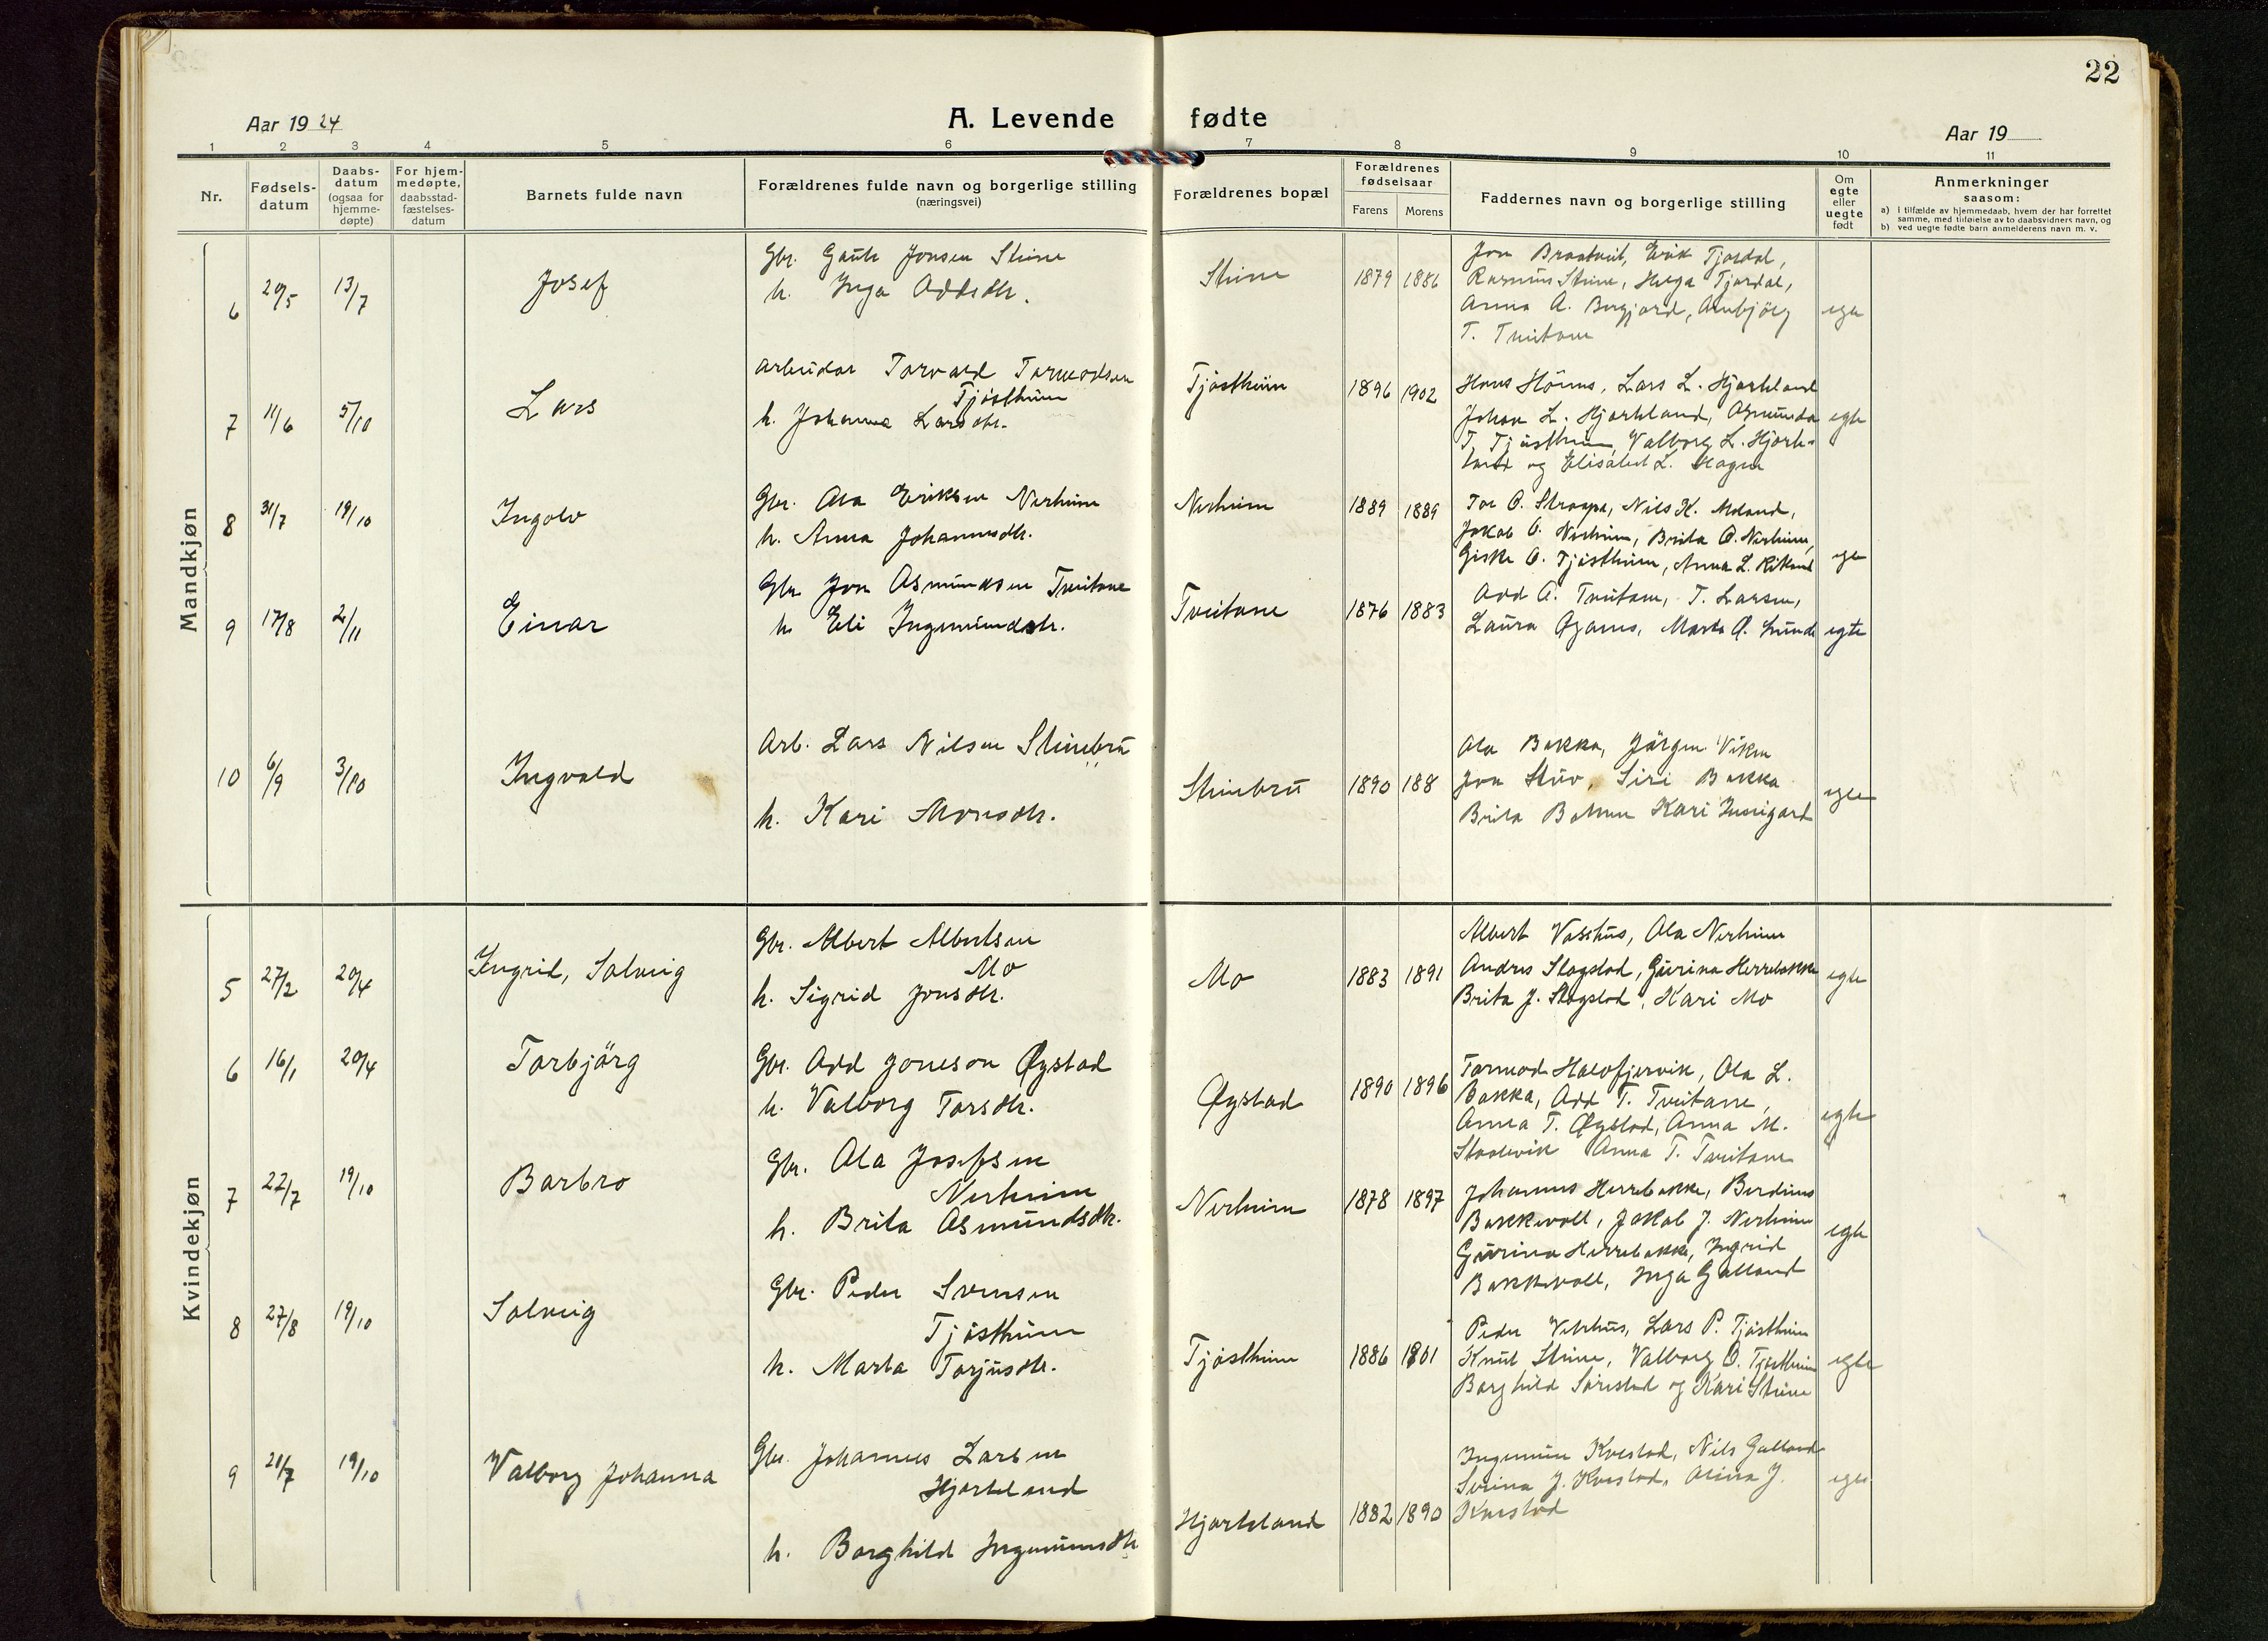 22
Aar 1924
A. Levende fødte
Aar 19
1 2 3 4 5 6 7 8 9 10 11
Nr.
Fødsels-
datum
Daabs-
datum
(ogsaa for
hjemme-
døpte)
For hjem-
medøpte,
daabsstad-
fæstelses-
datum
Barnets fulde navn
Forældrenes fulde navn og borgerlige stilling
(næringsvei)
Forældrenes bopæl
Forældrenes
fødselsaar
Farens Morens
Faddernes navn og borgerlige stilling
Om
egte
eller
uegte
født
Anmerkninger
saasom:
a) i tilfælde av hjemmedaab, hvem der har forrettet
samme, med tilføielse av to daabsvidners navn, og
b) ved uegte fødte barn anmelderens navn m. v.
Mandkjøn
6 20/5 13/7 Josef
Gbr. Jonsen Stene
h. Inga Oddsdtr.
Stene 1879 1886
Jon Braatveit, Erik Tjordal,
Rasmus Steine, Helga Tjordal,
Anna A. Bergjord, Ambjörg
T. Tveitane
egte
7 11/6 5/10 Lars
Arbeidar Torvald Tormodsen
Tjöstheim
h. Johanna Larsdtr.
Tjöstheim 1896 1902
Hans Höines, Lars L. Hjorteland
Johan L. Hjorteland, Osmunda
T. Tjöstheim, Valborg L. Hjorte-
land og Elisabet L. Hagen
egte
8 31/7 19/10 Ingolv
Gbr. Ola Eriksen Nerheim
h. Anna Johannesdtr.
Nerheim 1889 1889
Tor O. Nils K. Moland,
Jakob O. Nerheim, Brita O. Nerheim,
Giske O. Tjöstheim, Anna L.
egte
9 17/8 2/11 Einar
Gbr Jon Osmundsen Tveitane
h. Eli Ingemundsdtr.
Tveitane 1876 1883
Odd A. Tveitane, T. Larsen,
Laura Marta O.
egte
10 6/9 3/10 Ingvald
Arb. Lars Nilsen Steinbru
h. Kari Monsdtr.
Steinbru 1890 188
Ola Bakka, Jörgen Viken
Jon Siri Bakka
Brita Kari
egte
Kvindekjøn
5 27/2 20/4 Ingrid, Solveig
Gbr. Albert Albertsen
Mo
h. Sigrid Jonsdtr.
Mo 1883 1891
Albert Vasshus, Ola Nerheim
Andres Slogstad, Gurina Herrebakke
Brita J. Slogstad, Kari Mo
egte
6 16/1 20/4 Torbjörg
Gbr. Odd Joneson Øystad
h. Valborg Torsdtr.
Øystad 1890 1896
Tormod Ola L.
Bakka, Odd T. Tveitane,
Anna T. Øystad, Anna M.
Anna T. Tveitane
egte
7 22/7 19/10 Barbro
Gbr. Ola Josefsen
Nerheim
h. Brita Osmundsdtr.
Nerheim 1878 1897
Johannes Herrebakke, Berdines
Bakkevoll, Jakob J. Nerheim
Gurina Herrebakke, Ingrid
Bakkevoll, Inga Galland
egte
8 27/8 19/10 Solveig
Gbr. Peder Svensen
Tjöstheim
h. Marta Torjusdtr.
Tjöstheim 1886 1901
Peder Vetrhus, Lars P. Tjöstheim
Knut Steine, Valborg O. Tjöstheim
Borghild Sørestad og Kari Steine
egte
9 21/7 19/10 Valborg Johanna
Gbr. Johannes Larsen
Hjorteland
h. Borghild Ingemunsdtr
Hjorteland 1882 1890
Ingemun Kvestad, Nils Galland
Serina J. Kvestad, Olina J.
Kvestad
egte